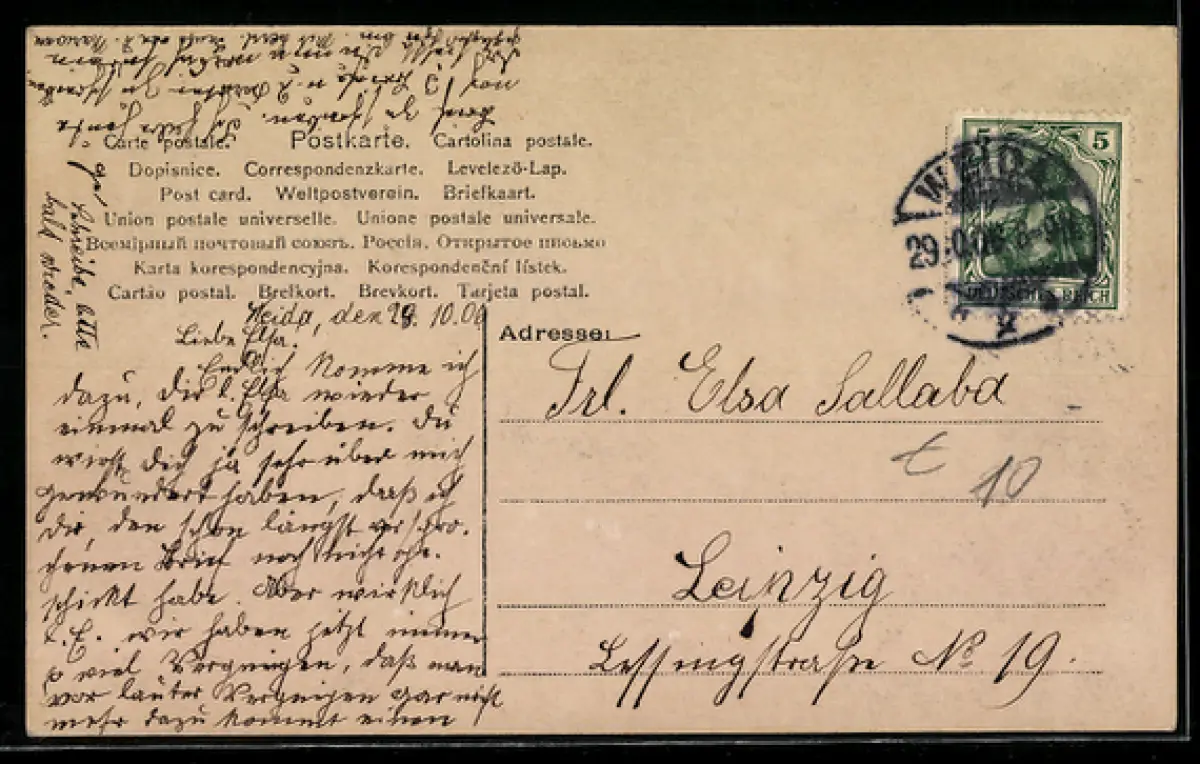 Carte postale. Postkarte. Cartolina postale.
Dopisnice. Correspondenzkarte. Levelező-Lap.
Post card. Weltpostverein. Briefkaart.
Union postale universelle. Unione postale universale.
Всемірный почтовый союзъ. Россія. Открытое письмо
Karta korespondencyjna. Korespondenční lístek.
Cartão postal. Brefkort. Brevkort. Tarjeta postal.
Weida, den 28. 10. 06
Liebe Elsa.
Endlich komme ich
dazu, Dir l. Elsa wieder
einmal zu schreiben. Du
wirst Dich ja sehr über mich
gewundert haben, daß ich
Dir, den schon längst verspro-
chenen Brief noch nicht ge-
schickt habe. Aber wirklich
l. E. wir haben jetzt immer
so viel Vergnügen, daß man
vor lauter Vergnügen gar nicht
mehr dazu kommt einen
Brief zu schreiben.
schreibe, bitte
bald wieder.
Adresse:
Frl. Elsa Sallaba
Leipzig
Lessingstraße No 19.
10
5 5
DEUTSCHES REICH
WEIDA